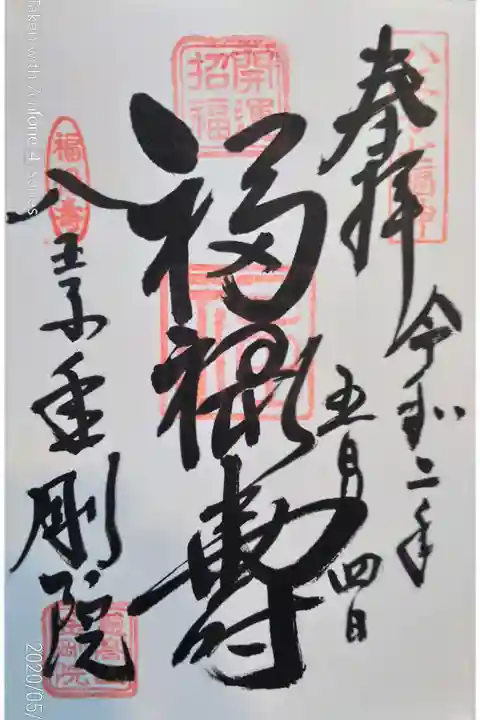 奉拝
令和二年
五月四日
開運
招福
福禄寿
福禄寿
八王子金剛院
金剛院
Taken with Zenfone 4 series
2020/05/